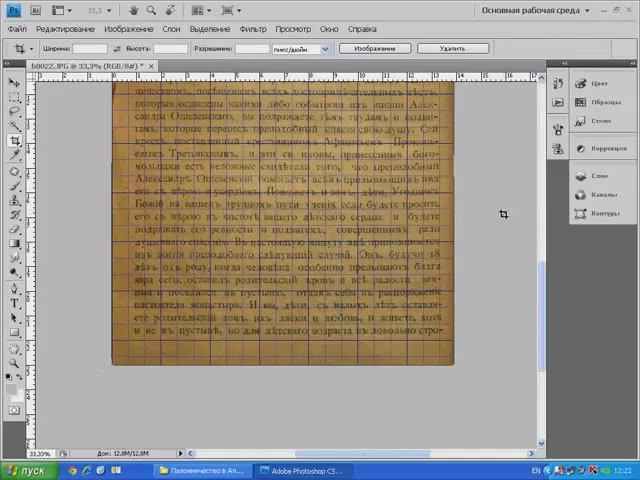 33,3
Основная рабочая среда
Файл Редактирование Изображение Слои Выделение Фильтр Просмотр Окно Справка
Ширина: Высота: Разрешение: пикс/дюйм Изображение Удалить
b0022.JPG @ 33,3% (RGB/8#) *
ничествомъ, посѣщеніемъ всѣхъ достопримѣчательныхъ мѣстъ,
которыя освящены какими либо событіями изъ жизни Алек-
сандра Ошевенскаго, вы подражаете тѣмъ трудамъ и подви-
гамъ, которые перенесъ преподобный спасая свою душу. Сей
крестъ, поставленный крестьяниномъ
евыхъ Третьяковыхъ, и эти св. иконы, принесенныя бого-
мольцами есть неложные свидѣтели того, что преподобный
Александръ Ошевенскій помогаетъ всѣмъ призывающимъ имя
его съ вѣрою и усердіемъ. Поможетъ и вамъ, дѣти, Угодникъ
Божій на вашемъ трудномъ пути ученія если будете просить
его съ вѣрою въ чистотѣ вашего дѣтскаго сердца и будете
подражать его ревности и подвигамъ, совершеннымъ ради
душевнаго спасенія. Въ настоящую минуту мнѣ припоминается
изъ житія преподобнаго слѣдующій случай. Онъ, будучи 18
лѣтъ отъ роду, когда человѣка особенно прельщаютъ блага
міра сего, оставилъ родительскій кровъ и всѣ радости зем-
ныя и поселился въ пустынѣ, отдавъ себя въ распоряженіе
настоятеля монастыря. И вы, дѣти, съ малыхъ лѣтъ оставля-
ете родительскій домъ, ихъ ласки и любовь, и живете, хотя
и не въ пустынѣ, но для дѣтскаго возраста въ довольно стро-
Цвет
Образцы
Стили
Коррекция
Слои
Каналы
Контуры
33,33% Док: 12,8M/12,8M
пуск Паломничество в Ал... Adobe Photoshop CS... EN 12:22